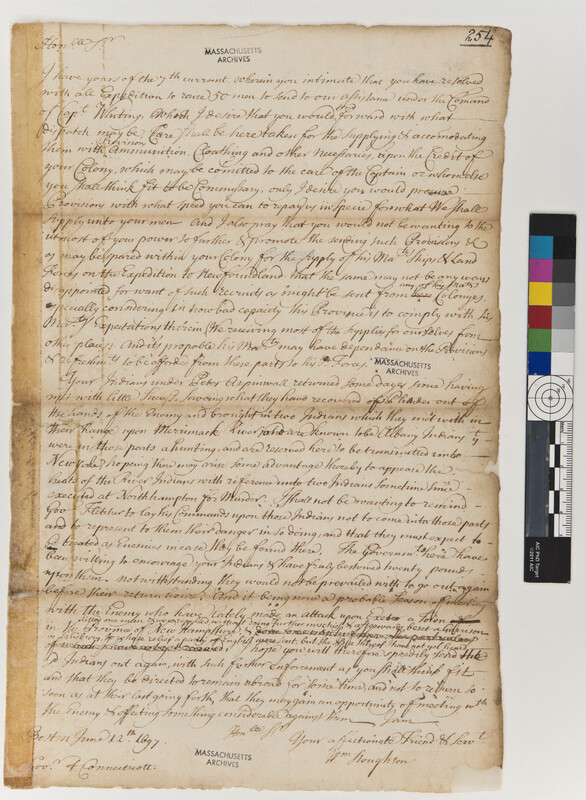 254
Hon.ble Sr
MASSACHUSETTS
ARCHIVES
I have yours of the 7th currant wherein you intimate that you have resolved
with all Expedition to raise 50 men to send to our assistance under the Comand
of Capt. Whiting, which I desire that you would forward with what
Dispatch may be; Care shall be here taken for the Supplying & accomodating
them with Provision Ammunition, Cloathing and other Necessaries, upon the Credit of
your Colony, which may be comitted to the care of the Captain or whom else
you shall think fit to be Commissary, only I desire you would procure
Provisions with what speed you can to repay us in Specie for what We shall
Supply unto your men And I also pray that you would not be wanting to the
utmost of your power to further & promote the sending such Provisions &c
as may be spared within your Colony for the Supply of his Maj.tys Ships & Land
Forces on the Expedition to Newfoundland that the same may not be any ways
disappointed for want of such recruits as might be sent from any of his Maj.tys Colonyes,
especially considering in how bad capacity this Province is to comply with his
Maj.tys Expectations therein (We receiving most of the Supplys for ourselves from
other places And it's propable his Maj.ty may have dependance on the Provisions
& refreshmts to be afforded from these parts to his Forces.
MASSACHUSETTS
ARCHIVES
Your Indians under Peter Aspinwall returned some dayes since having
met with little Success,
the hands of the Enemy and brought in two Indians which they met with in
their Range upon Merrimack River, and are known to be Albany Indians yt
were in those parts a hunting, and are reserved here to be transmitted unto
New Yorke, hopeing there may arise some advantage thereby to appease the
of the River Indians with reference unto two Indians Sometime since
executed at Northhampton for Murder. I shall not be wanting to remind
Govr Fletcher to lay his Commands upon those Indians not to come into those parts
and to represent to them their danger in so doing, and that they must expect to
be treated as Enemies in case they be found there. The Governmt here have
been willing to encourage your Indians & have freely bestowed twenty pounds
upon them. notwithstanding they would not be prevailed with to go out again
before their return home. And it being now a probable Season of meeting
with the Enemy who have lately made an attack upon Exeter a Town
in the Province of New Hampshire, &
hope you will therefore speedily send
Indians out again, with such further Enforcement as you shall think fit
and that they be directed to remain abroad for some time, and not to return so
soon as at their last going forth, that they may gain an opportunity of meeting wth
the Enemy & effecting something considerable against them I am
Hon.ble Sr
Boston June 12th 1697.
Your affectionate Friend & Servt
Wm Stoughton
MASSACHUSETTS
ARCHIVES
Govr of Connecticott.